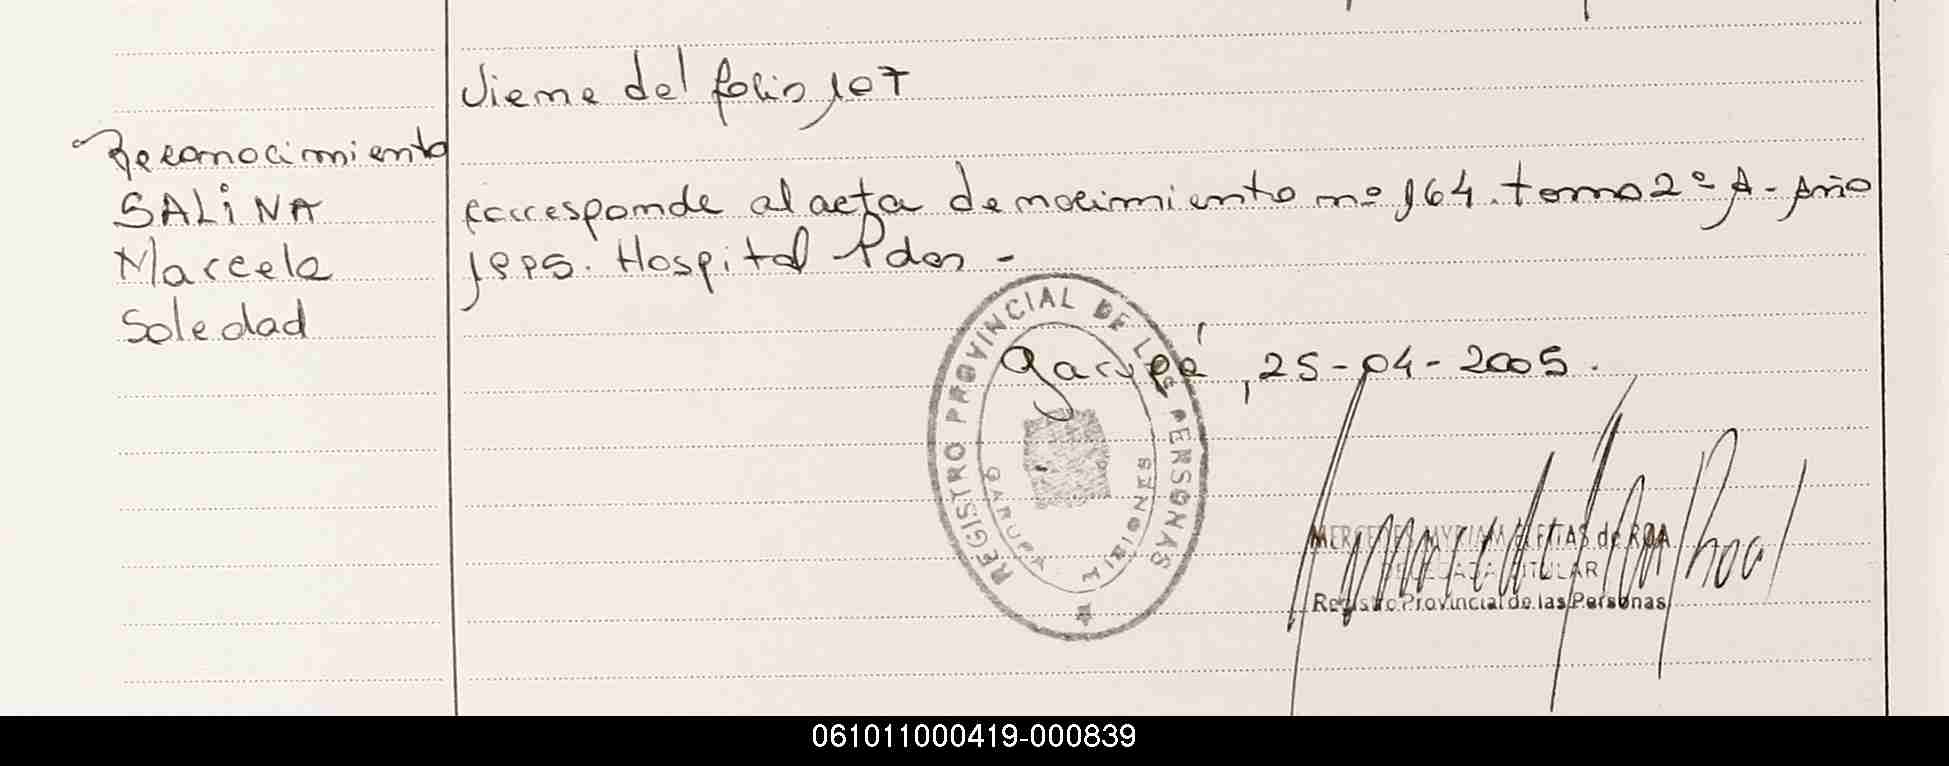 Viene del folio 107
Reconocimiento
SALINA
Marcela
Soledad
corresponde al acta de nacimiento nº 164. tomo 2º A - Año
1995. Hospital Pdas -
Garupá, 25-04-2005.
REGISTRO PROVINCIAL DE LAS PERSONAS
GARUPA
MISIONES
MERCEDES MYRIAM de ROA
DELEGADA TITULAR
Registro Provincial de las Personas
061011000419-000839